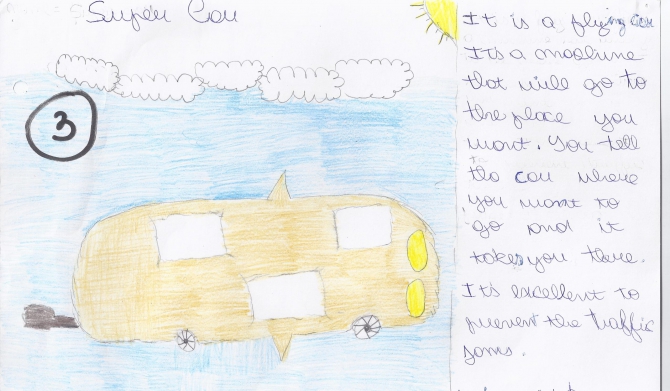 Super Car
3
It is a flying car
It's a machine
that will go to
the place you
want. You tell
the car where
you want to
go and it
takes you there.
It's excellent to
prevent the traffic
jams.